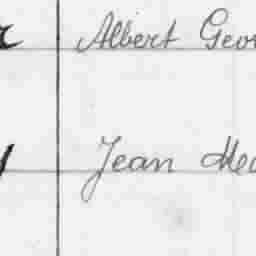 Albert Geor
Jean Mea